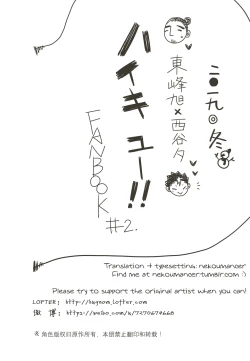 二〇一九◎冬
東峰旭×西谷夕
ハイキュー!!
FANBOOK
#2.
Translation + typesetting: nekoumancer
Find me at nekoumancer.tumblr.com :)
Please try to support the original artist when you can!
LOFTER: http://hnynom.lofter.com
微 博: https://weibo.com/u/7270674668
※ 角色版权归原作所有，本册禁止翻印和转载！